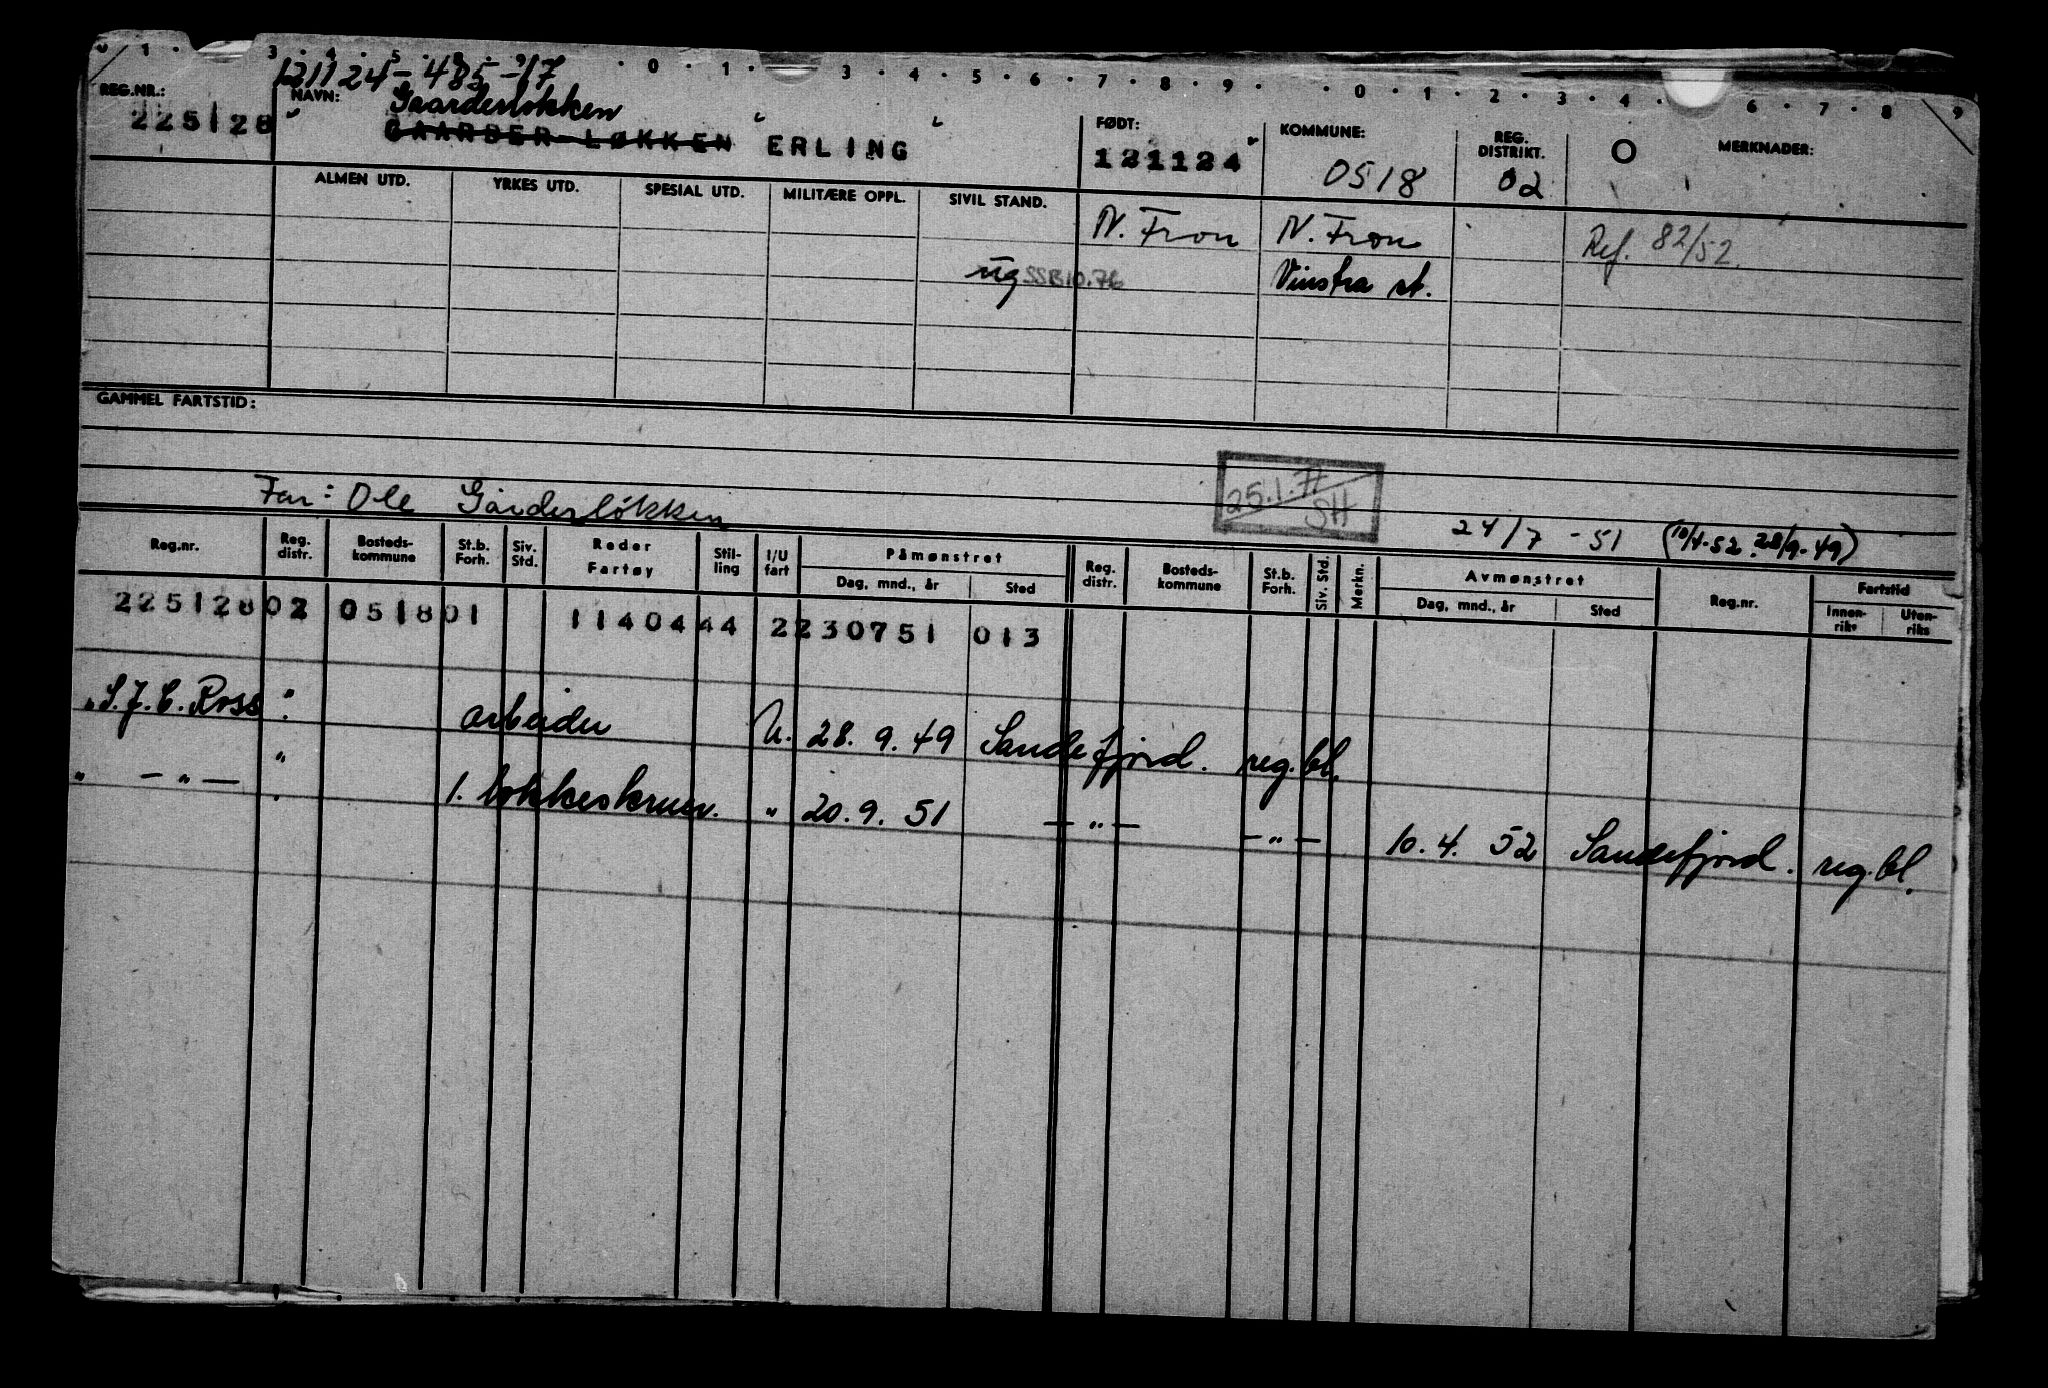 0 1 · · 3 · 4 · 5 · 8 · 9 · 0 · 1 · · 3 · 4 · 5 · 6 · 7 · 8 · 9 · · 0 · 1 · 2 · 3 · 4 · · 6 · 7 · 8 9
121124-485-17
REG.NR.: NAVN: Gaarderløkken FØDT: KOMMUNE: REG. DISTRIKT. O MERKNADER:
225128 GAARDER-LØKKEN ERLING 121124 0518 02
ALMEN UTD. YRKES UTD. SPESIAL UTD. MILITÆRE OPPL. SIVIL STAND.
N. Fron N. Fron Ref. 82/52.
ug SSB10.76 Vinstra st.
GAMMEL FARTSTID:
25.1.77
SH
Far: Ole Gårderløkken 24/7 - 51 (10/4-52. 28/9-49)
Reg.nr. Reg. distr. Bosteds-kommune St.b. Forh. Siv. Std. Reder Fartøy Stil-ling I/U fart Påmønstret Reg. distr. Bosteds-kommune St.b. Forh. Siv. Std. Merkn. Avmønstret Reg.nr. Fartstid
Dag, mnd., år Sted Dag, mnd., år Sted Innen-riks Uten-riks
225128 02 0518 01 1140444 2 230751 013
"S.J.C. Ross " arbeider U. 28. 9. 49 Sandefjord. reg.bl.
" — " — " 1. kokkeskruer. " 20. 9. 51 — " — — " — 10. 4. 52 Sandefjord. reg.bl.